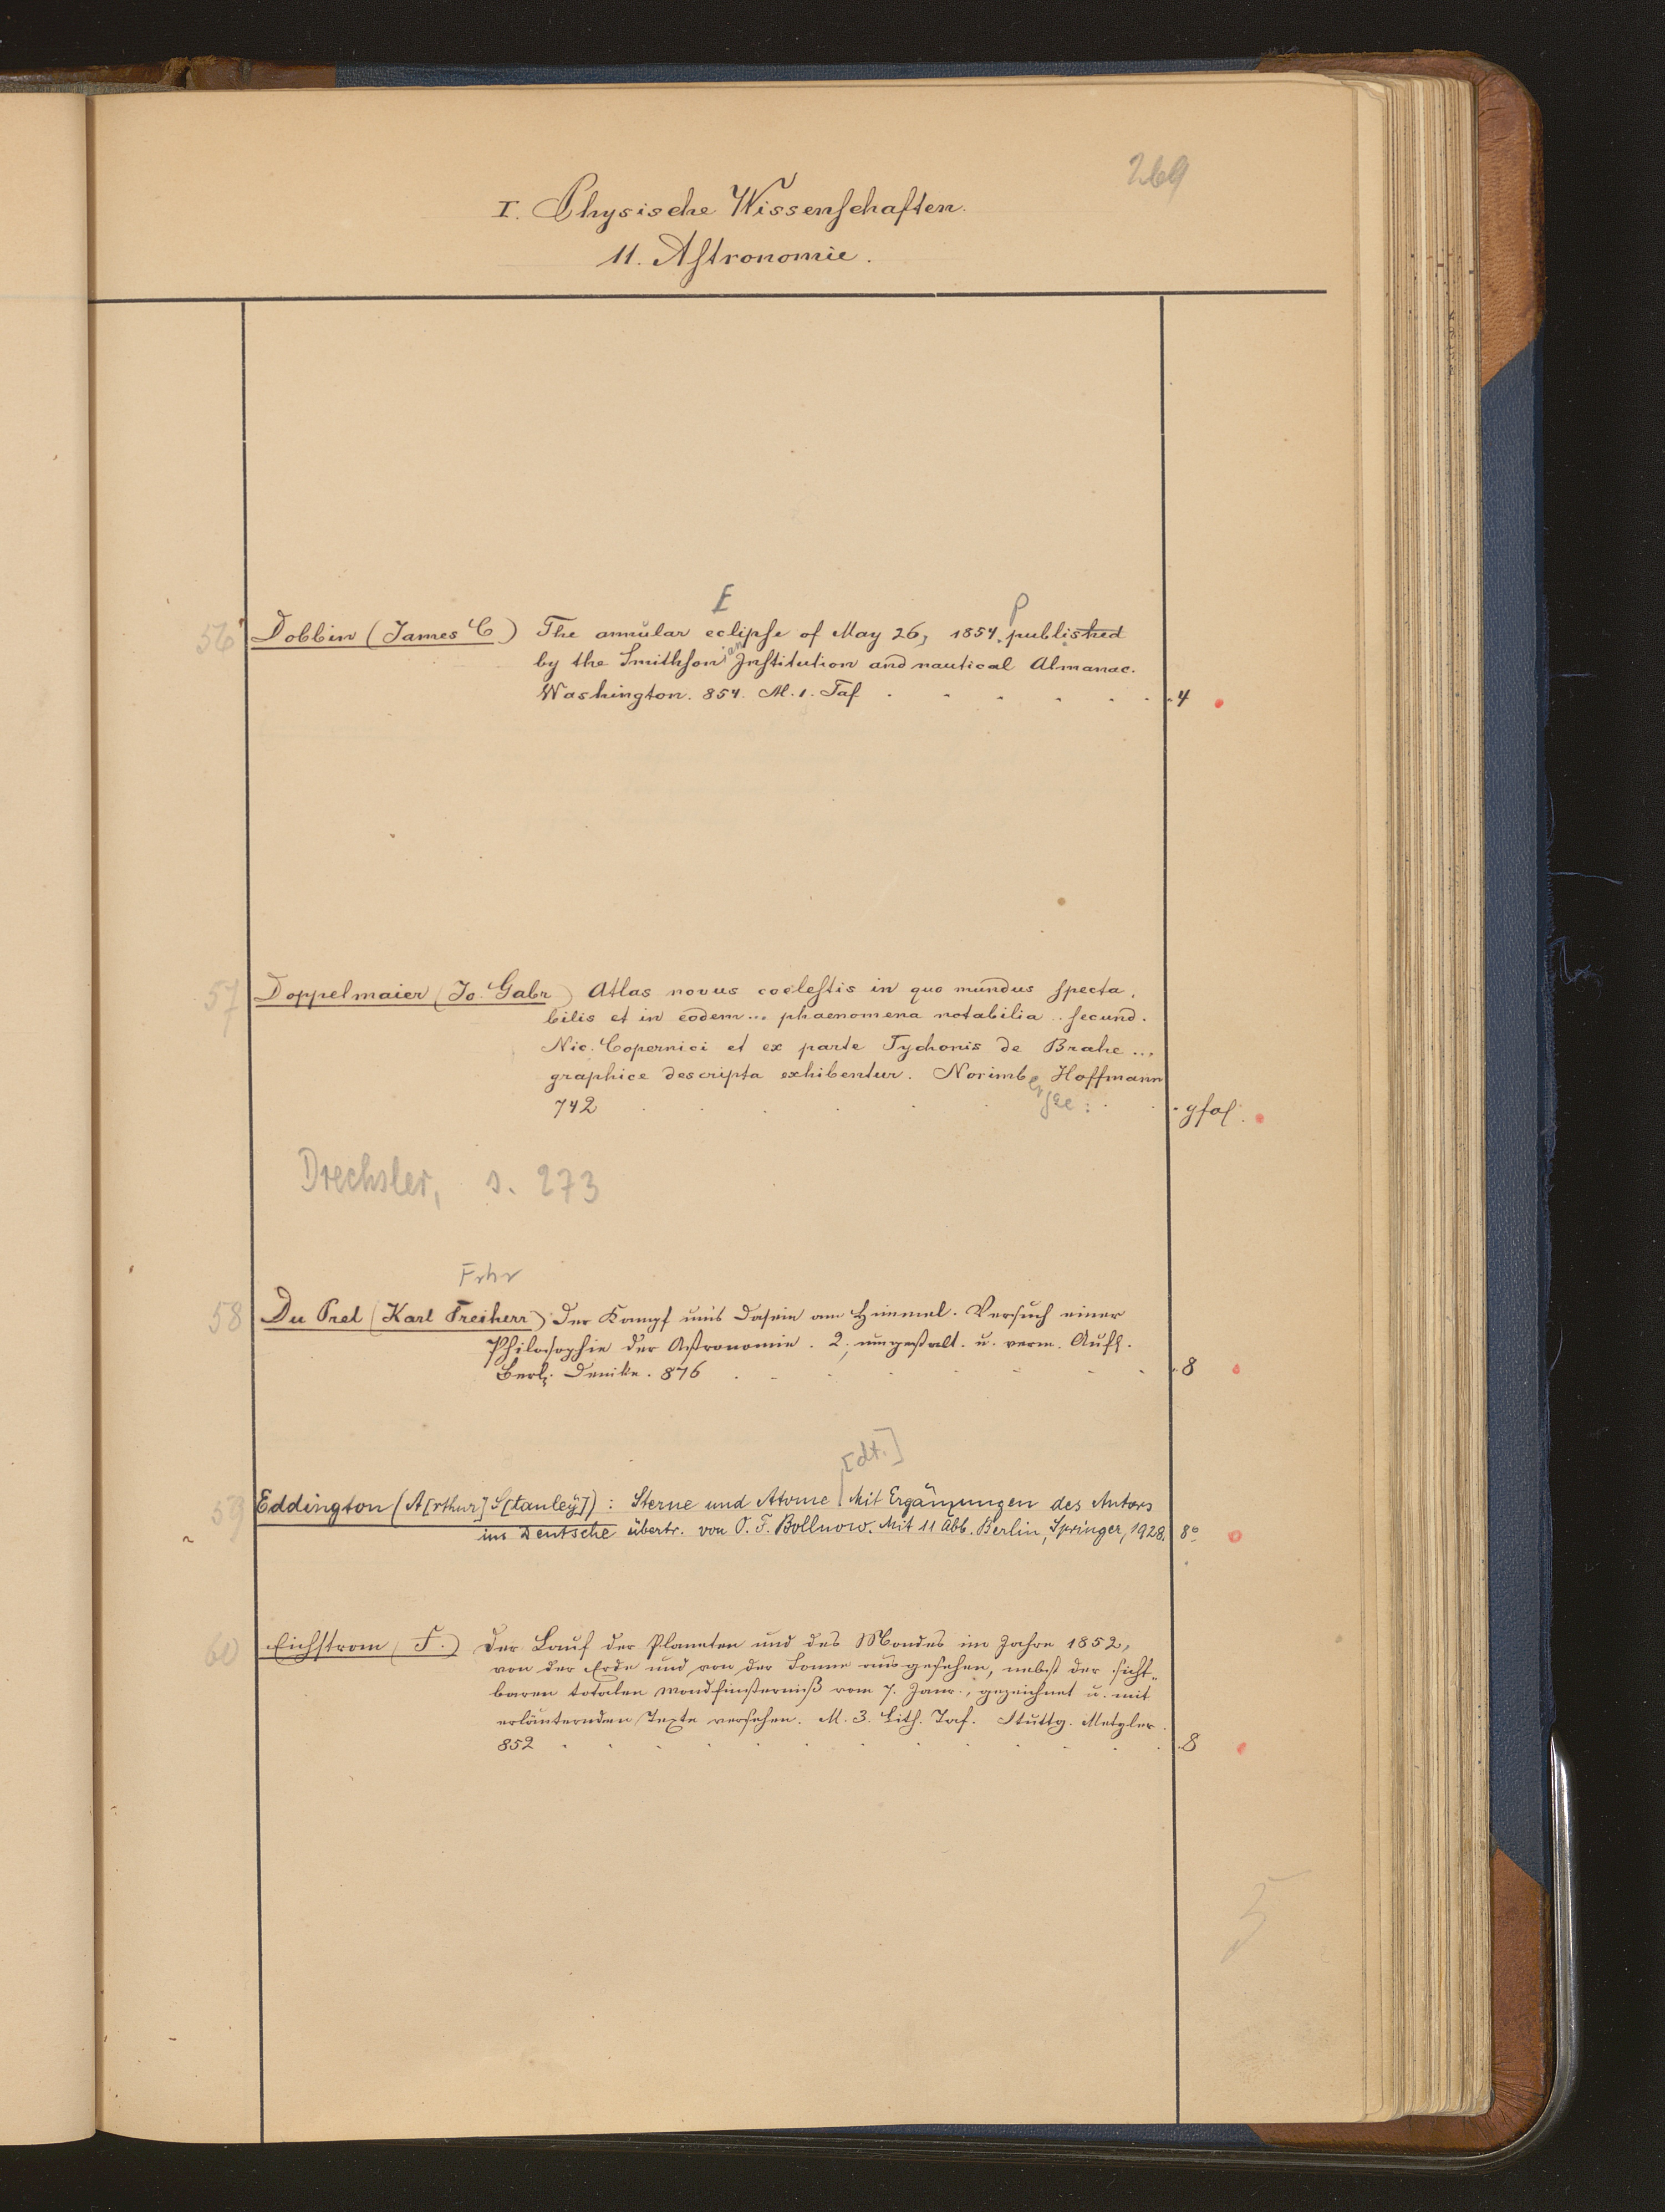 269
I. Physische Wissenschaften.
11. Astronomie.
E P
56 Dobbin (James C.) The annular eclipse of May 26, 1854, published
by the Smithsonian Institution and nautical Almanac.
Washington. 854. M. 1. Taf . . . . . . 4
57 Doppelmaier (Jo. Gabr.) Atlas novus coelestis in quo mundus specta-
bilis et in eodem ... phaenomena notabilia .. secund.
Nic. Copernici et ex parte Tychonis de Brahe ...
graphice descripta exhibentur. Norimb Hoffmann
742 . . . . . . gfol.
Drechsler, s. 273
Frhr
58 Du Prel (Karl Freiherr) Der Kampf um's Dasein am Himmel. Versuch einer
Philosophie der Astronomie. 2., umgestalt. u. verm. Aufl.
Berl. Denike. 876 . . . . . . 8
[dt.]
59 Eddington (A[rthur] S[tanley]): Sterne und Atome Mit Ergänzungen des Autors
ins Deutsche übertr. von O. F. Bollnow. Mit 11 Abb. Berlin, Springer, 1928. 8°
60 Eichstrom (F.) Der Lauf der Planeten und des Mondes im Jahre 1852,
von der Erde und von der Sonne aus gesehen, nebst der sicht-
baren totalen Mondfinsterniß vom 7. Janr., gezeichnet u. mit
erläuternden Texte versehen. M. 3. Lith. Taf. Stuttg. Metzler.
852 . . . . . . 8
5